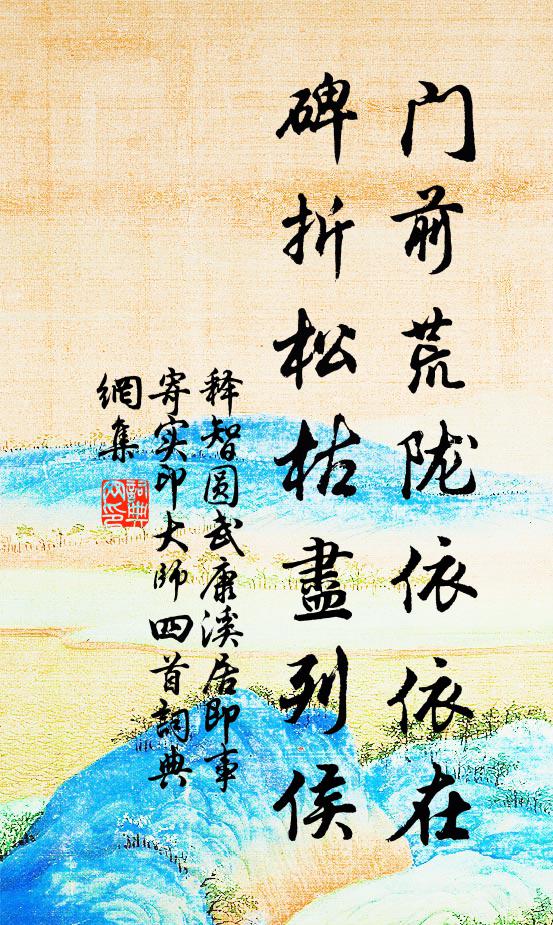 门前荒陇依依在
碑折松枯盡列侯
释智圆武康溪居即事
寄实印大师四首詞典
網集